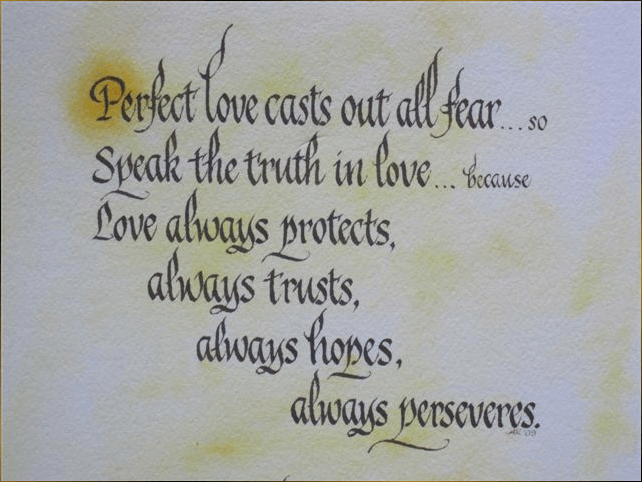 Perfect love casts out all fear...so
Speak the truth in love... because
Love always protects,
always trusts,
always hopes,
always perseveres.